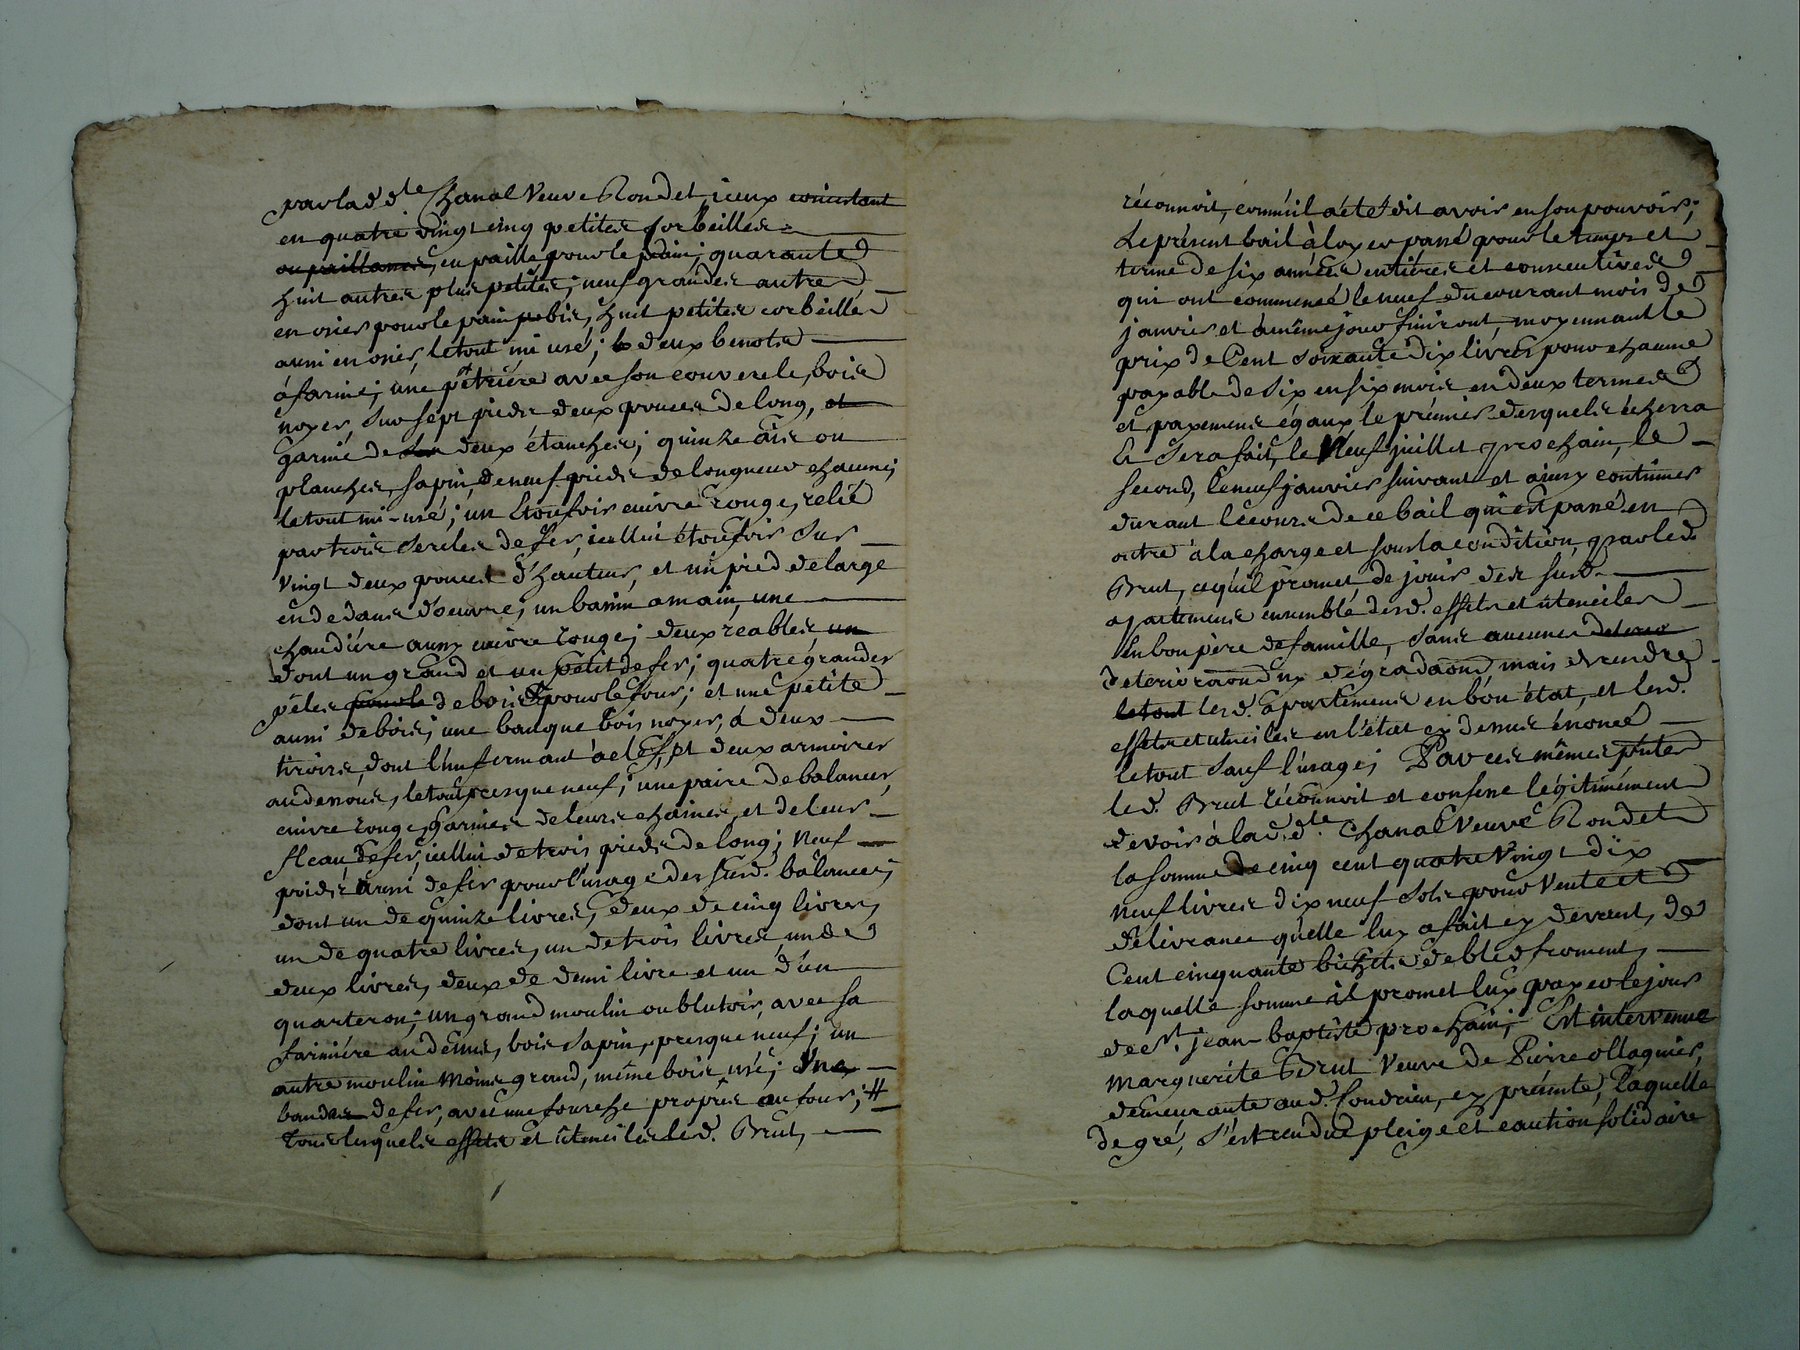 par lad. dlle Chanal Veuve Rondet, iceux consistant
en quatre vingt cinq petites Corbeilles
ou paillasses, en paille, pour le pain; quarante
huit autres plus petites; neuf grandes autres
en osier pour le pain bis, huit petites corbeilles
aussi en osier, le tout mi usé; deux benots
à farine; une pêtrière avec son couvercle, bois
noyer, sur sept pieds deux pouces de long, et
garnie de deux étanches; quinze ais ou
planches sapin, de neuf pieds de longueur chacune;
le tout mi-usé; un Etoufoir cuivre rouge, relié
par trois sercles de fer, icelluy étoufoir sur
vingt deux pouces d'hauteur, et un pied de large
en dedans d'oeuvre; un bassin a main, une
chaudière aussy cuivre rouge; deux reables un
dont un grand et un petit de fer; quatre grandes
pêles de bois pour le four; et une petite
aussi de bois; une banque bois noyer, à deux
tiroirs, dont l'un fermant à clef, et deux armoires
au dessous, le tout presque neuf; une paire de balances,
cuivre rouge, garnies de leurs chaines, et de leur
fleau de fer, icelluy de trois pieds de long; neuf
poids aussi de fer pour l'usage des susd. balances;
dont un de quinze livres, deux de cinq livres,
un de quatre livres, un de trois livres, un de
deux livres, deux de demi livre et un d'un
quarteron; un grand moulin ou blutoir, avec sa
farinière au dessus, bois sapin, presque neuf; un
autre moulin moins grand, même bois, usé; Une
bande de fer, avec une fourche propres au four; #
tous lesquels effets et utencilesled. Brut,
réconnoit, comme il a été dit avoir en son pouvoir;
Le présent bail à loyer passé pour le temps et
terme de six années entières et consecutives
qui ont commencé le neuf du courant mois de
janvier et à même jour finiront, moyennant le
prix de Cent soixante dix livres pour chacune
payable de six en six mois en deux termes
et payemens égaux le prémier desquels écherra
Et sera fait, le Neuf juillet prochain, le
second, le neuf janvier suivant et ainsy continuer
durant le cours de ce bail qui est passé en
outre à la charge et sous la condition, que led.
Brut, ce qu'il promet de jouir des susd.
apartemens ensemble desd. effets et utenciles
En bon père de famille, sans aucunes deterio
deterioraõns ny dégradaõns, mais de rendre
le tout lesd. apartemens en bon état, et lesd.
effets et utenciles en l'état cy dessus énoncé
le tout sauf l'usage; Par ces mêmes pntes
led. Brut réconnoit et confesse légitimément
devoir à lad. dlle Chanal Veuve Rondet
la somme de cinq cent quatre vingt dix
neuf livres dix neuf sols pour Vente et
délivrance qu'elle luy a fait cy devant, de
Cent cinquante bichets de bled froment,
laquelle somme il promet luy payer le jour
de St. jean-baptiste prochain; Est intervenue
marguerite Brut Veuve de Pierre ollagnier,
demeurante aud. Condrieu, cy présente, Laquelle
de gré, s'est rendue pleige et caution solidaire